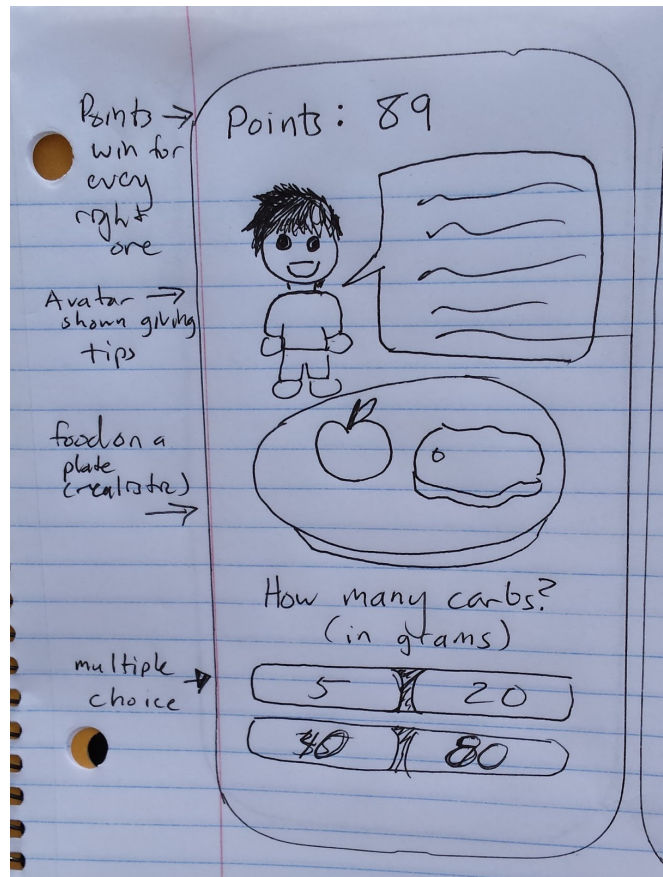 Points: 89
Points →
win for
every
right
one
Avatar →
shown giving
tips
food on a
plate
(realistic)
→
How many carbs?
(in grams)
multiple →
choice
5 20
40 80